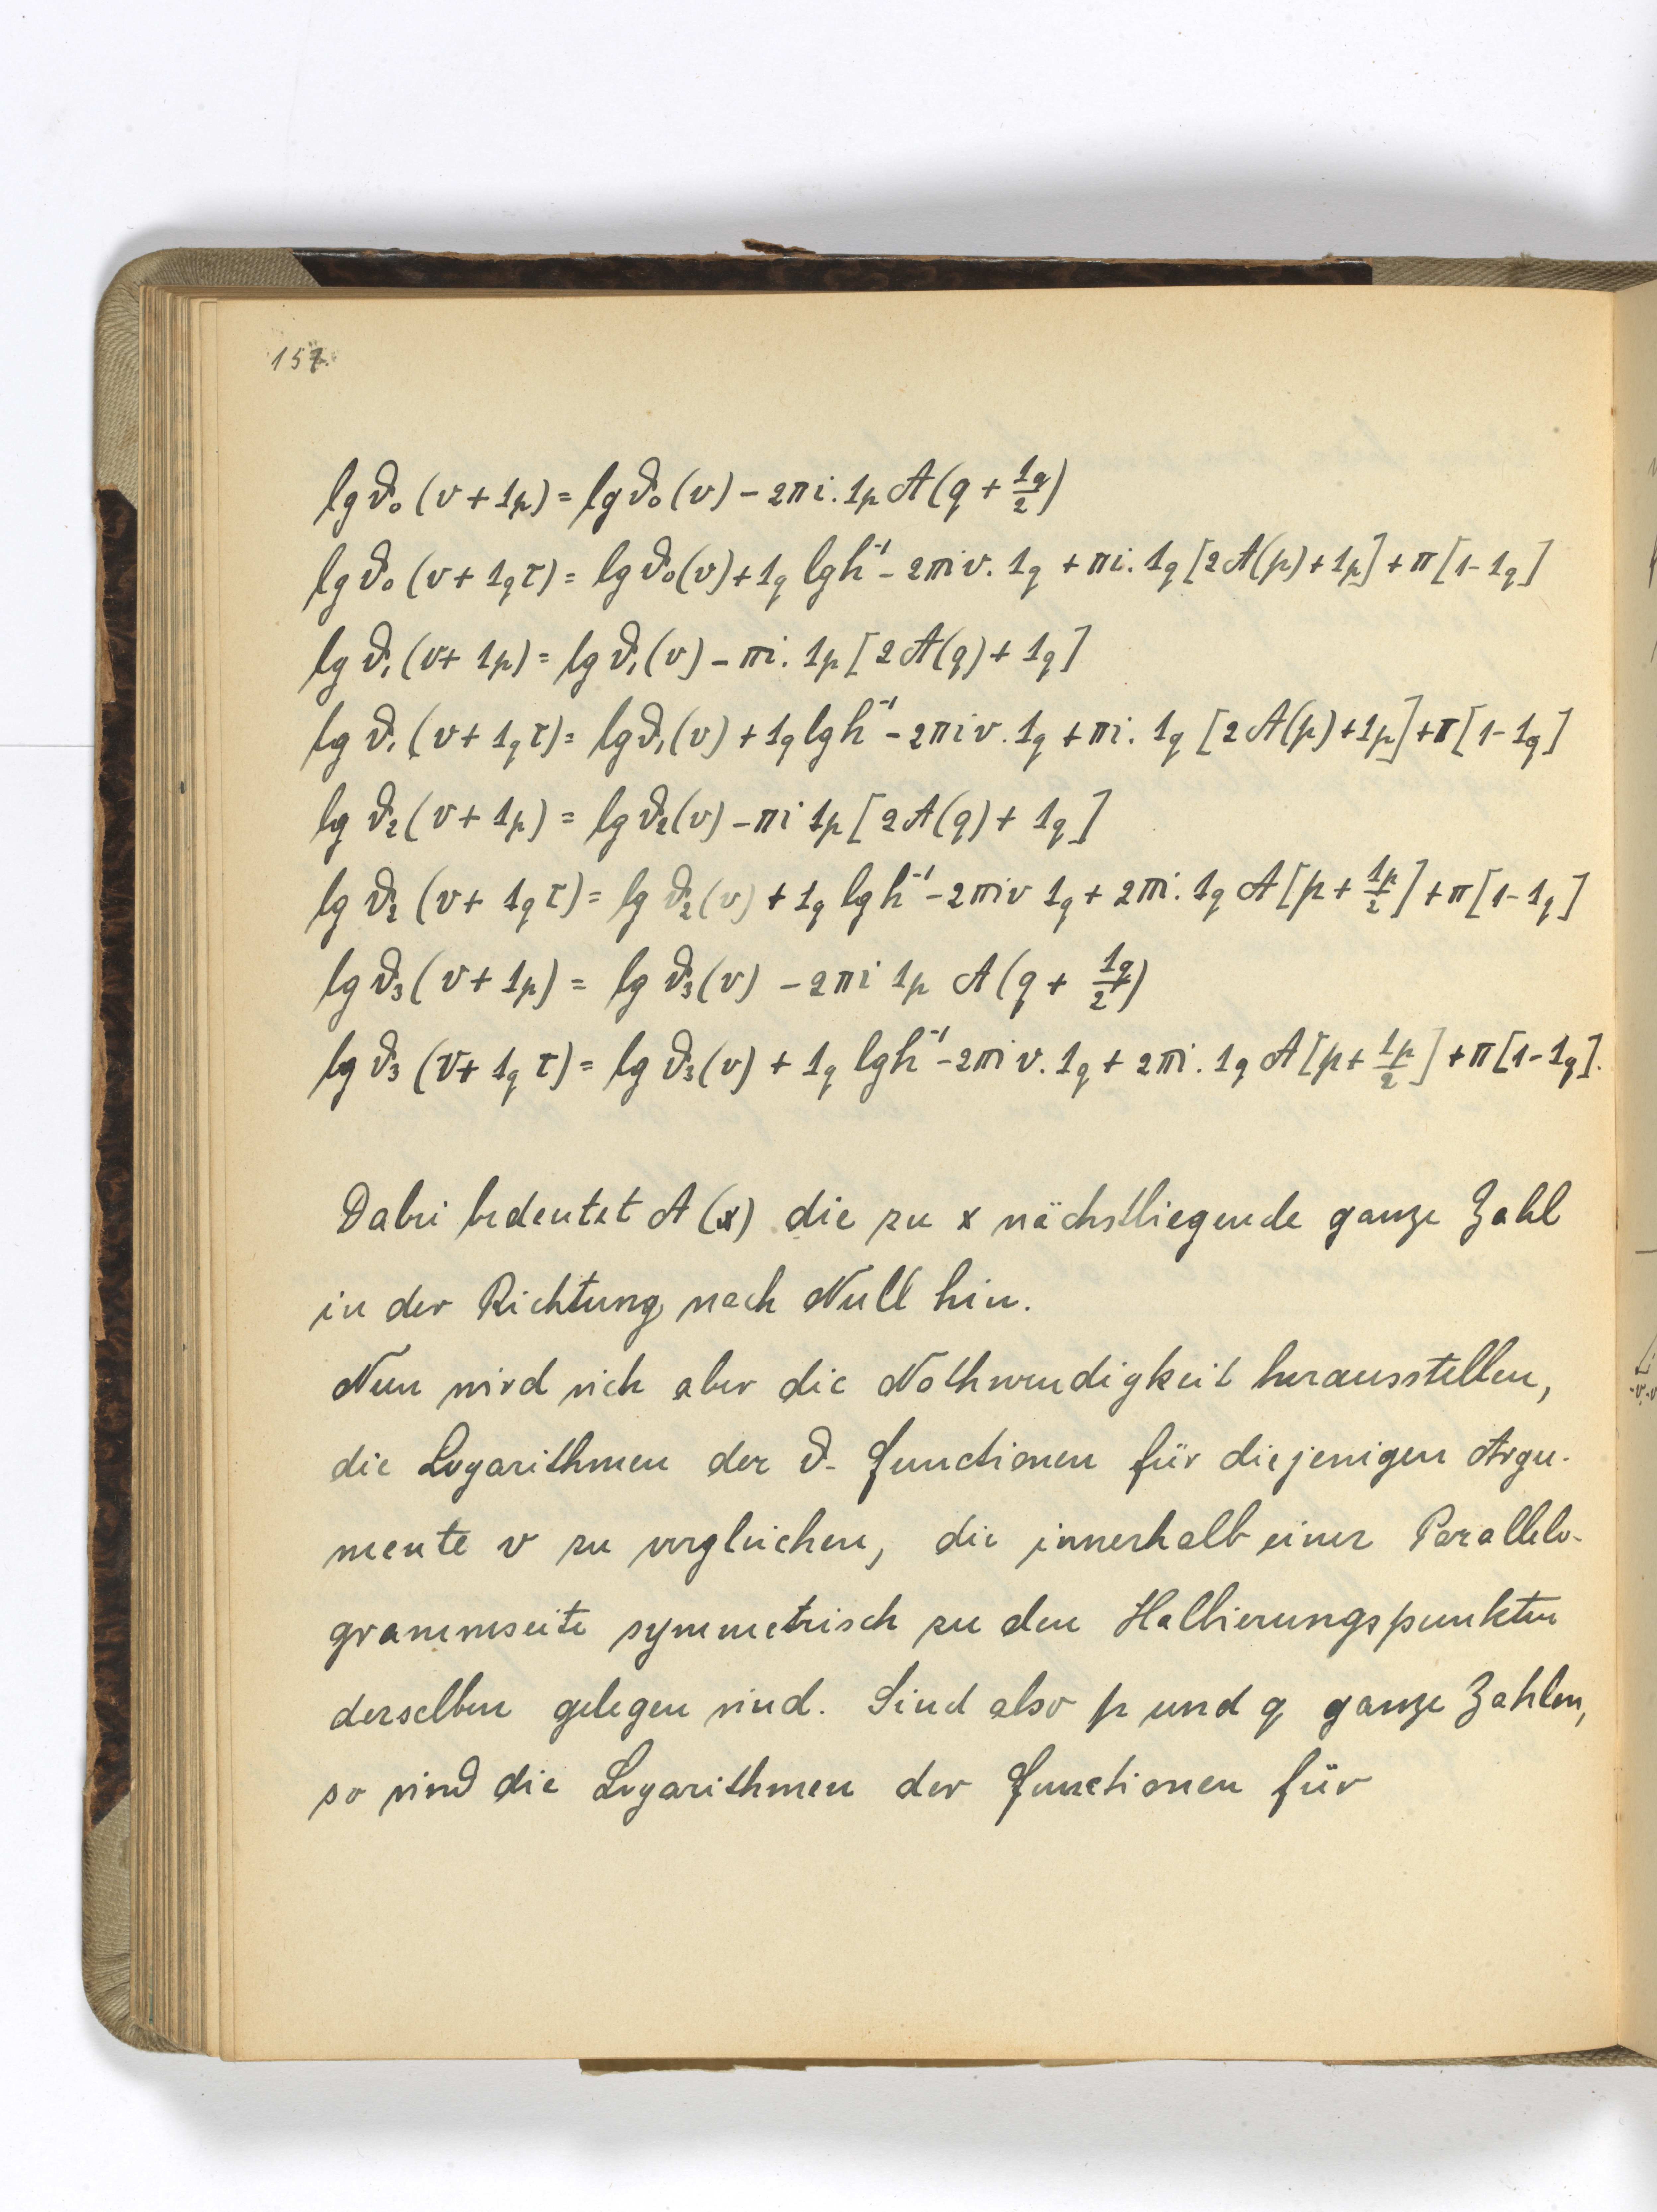 157.
lg ϑ₀ (v + 1ₚ) = lg ϑ₀ (v) − 2πi. 1ₚ A (q + 1_q/2)
lg ϑ₀ (v + 1_q τ) = lg ϑ₀ (v) + 1_q lg h⁻¹ − 2πiv. 1_q + πi. 1_q [2A(p) + 1ₚ] + π [1 − 1_q]
lg ϑ₁ (v + 1ₚ) = lg ϑ₁ (v) − πi. 1ₚ [2A(q) + 1_q]
lg ϑ₁ (v + 1_q τ) = lg ϑ₁ (v) + 1_q lg h⁻¹ − 2πiv. 1_q + πi. 1_q [2A(p) + 1ₚ] + π [1 − 1_q]
lg ϑ₂ (v + 1ₚ) = lg ϑ₂ (v) − πi 1ₚ [2A(q) + 1_q]
lg ϑ₂ (v + 1_q τ) = lg ϑ₂ (v) + 1_q lg h⁻¹ − 2πiv 1_q + 2πi. 1_q A [p + 1ₚ/2] + π [1 − 1_q]
lg ϑ₃ (v + 1ₚ) = lg ϑ₃ (v) − 2πi 1ₚ A (q + 1_q/2)
lg ϑ₃ (v + 1_q τ) = lg ϑ₃ (v) + 1_q lg h⁻¹ − 2πiv. 1_q + 2πi. 1_q A [p + 1ₚ/2] + π [1 − 1_q].
Dabei bedeutet A (x) die zu x nächstliegende ganze Zahl
in der Richtung nach Null hin.
Nun wird sich aber die Nothwendigkeit herausstellen,
die Logarithmen der ϑ-Functionen für diejenigen Argu-
mente v zu vergleichen, die innerhalb einer Parallelo-
grammseite symmetrisch zu den Halbierungspunkten
derselben gelegen sind. Sind also p und q ganze Zahlen,
so sind die Logarithmen der Functionen für